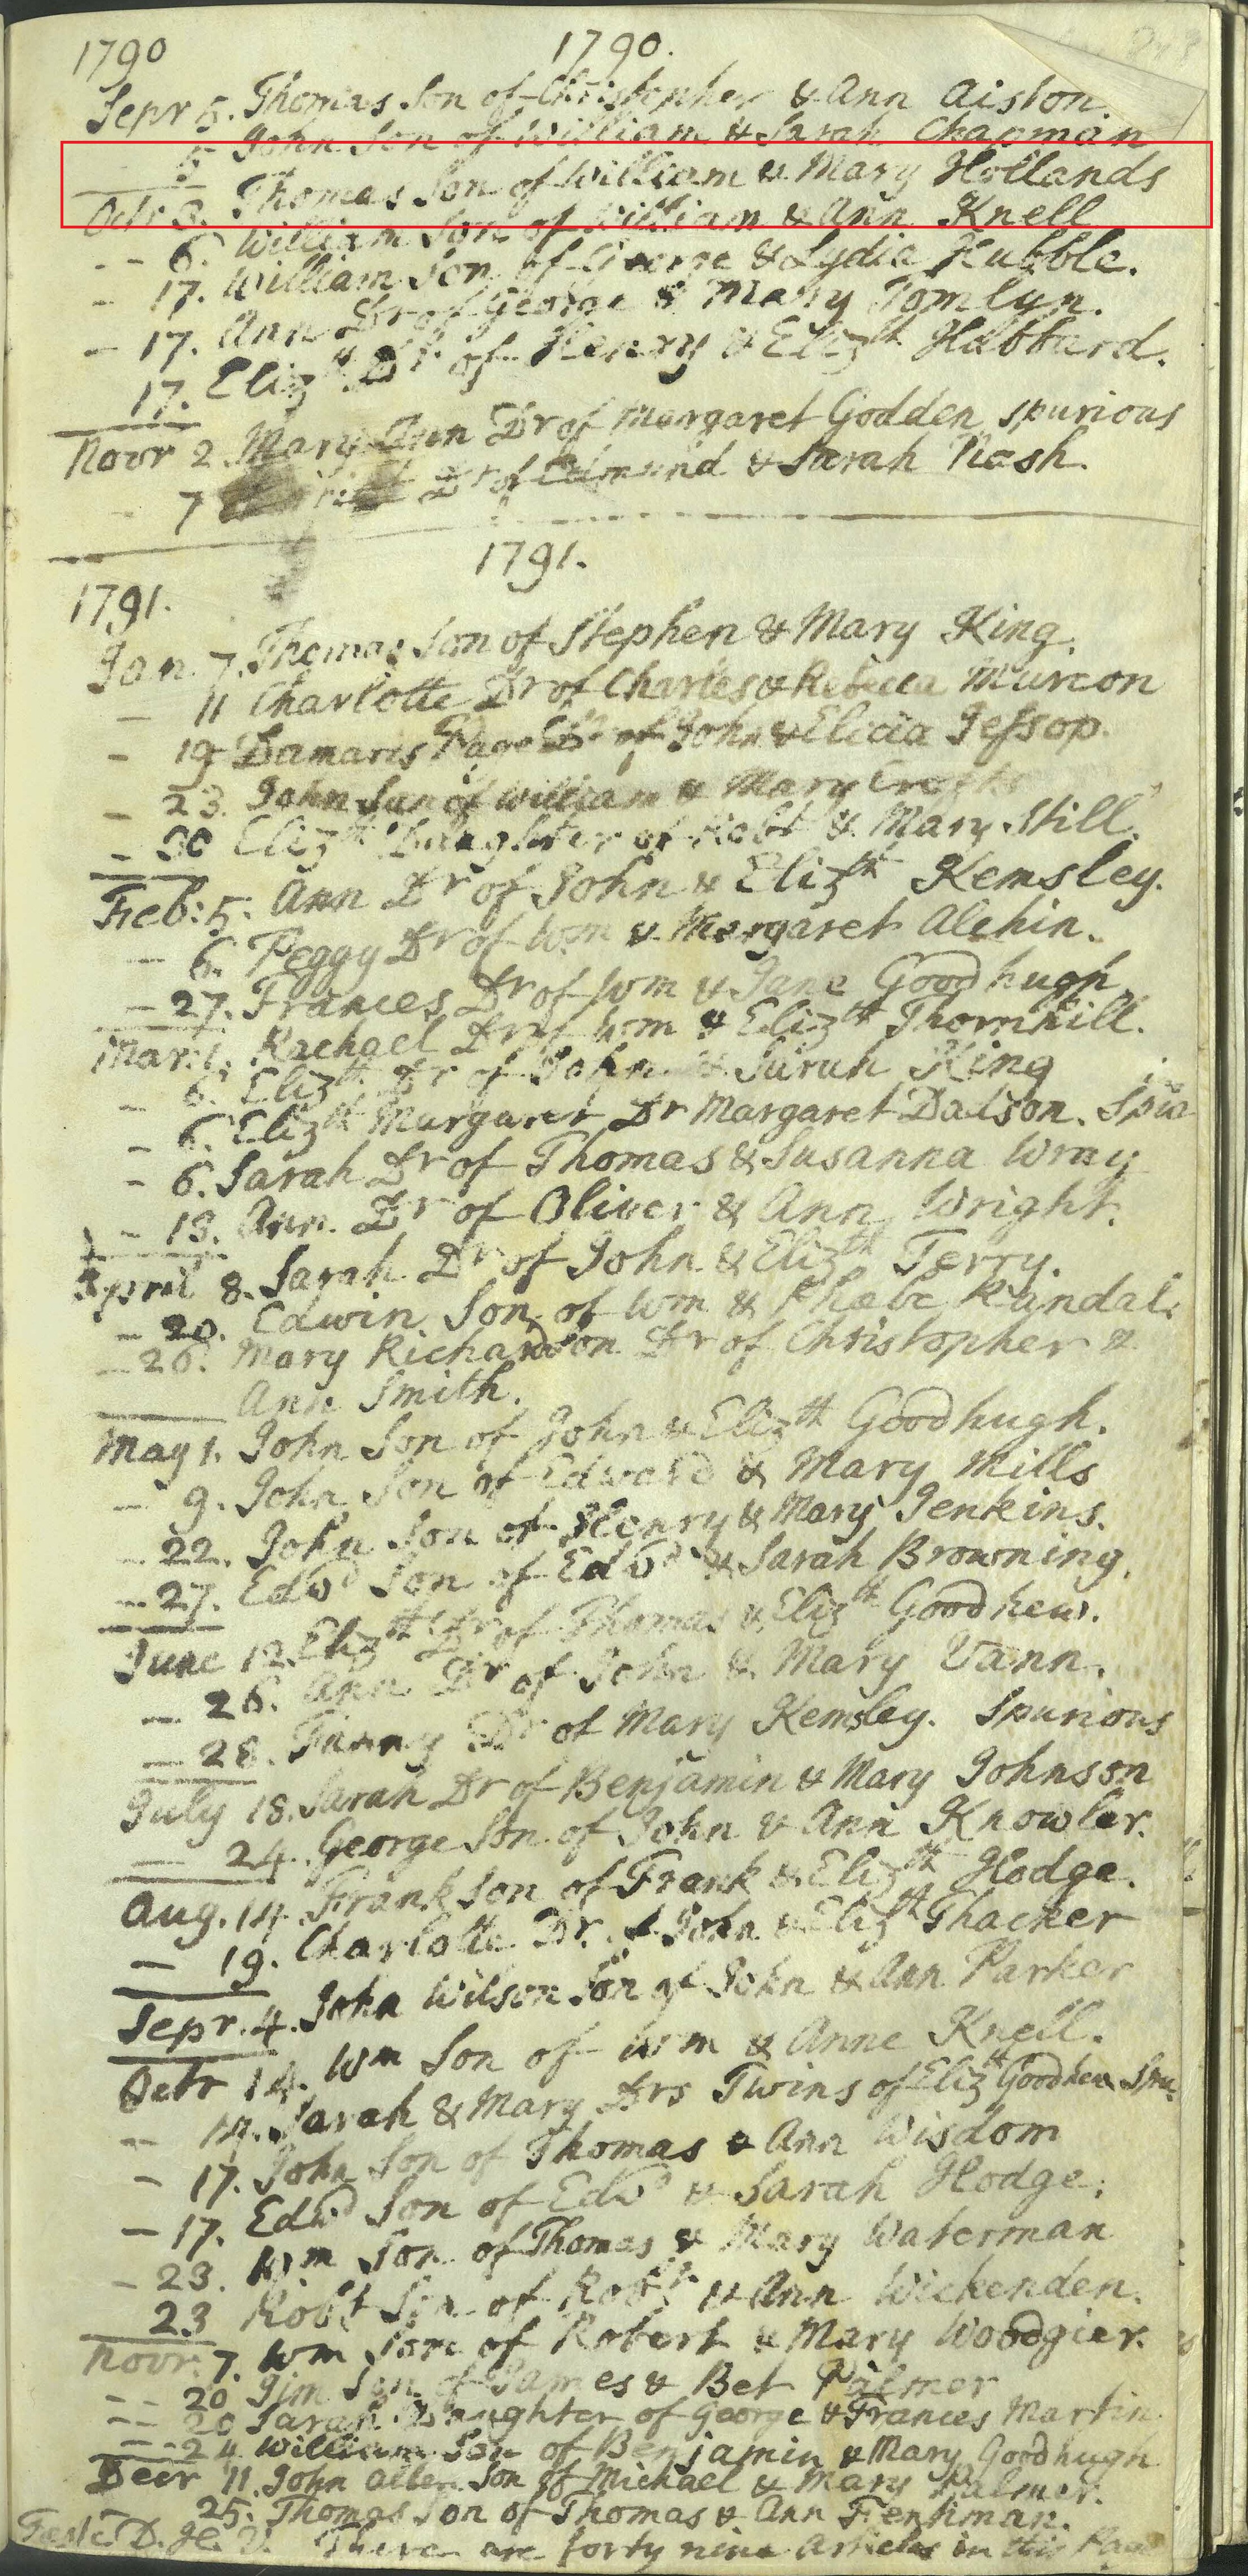 1790 1790.
Sepr 5. Thomas Son of Christopher & Ann Aiston
5 John Son of William & Sarah Chapman
Octr 3. Thomas Son of William & Mary Hollands
-- 6. William Son of William & Ann Knell
- 17. William Son of George & Lydia Hubble.
- 17. Ann Dr of George & Mary Tomlyn.
17. Elizth Dr of Henry & Elizth Habbard.
Novr 2. Mary Ann Dr of Margaret Godden spurious
- 7 Dr of Edmund & Sarah Nash.
1791.
1791.
Jan. 7. Thomas Son of Stephen & Mary King.
- 11 Charlotte Dr of Charles & Rebecca Murcon
- 19 Damaris Page Dr of John & Elicia Jessop.
- 23. John Son of William & Mary Crofts
- 30 Elizth Daughter of Robt & Mary Still.
Feb: 5. Ann Dr of John & Elizth Kemsley.
- 6. Peggy Dr of Wm & Margaret Alchin.
- 27. Frances Dr of Wm & Jane Goodhugh
Mar: 1. Rachael Dr of Wm & Elizth Thornhill.
- 6. Elizth Dr of John & Sarah King
- 6. Elizth Margaret Dr Margaret Dadson. Spu
- 6. Sarah Dr of Thomas & Susanna Wray
- 13. Ann. Dr of Oliver & Ann Wright.
April 8. Sarah Dr of John & Elizth Terry.
- 20. Edwin Son of Wm & Phœbe Rundal
- 26. Mary Richardson Dr of Christopher &
Ann Smith.
May 1. John Son of John & Elizth Goodhugh.
- 9. John Son of Edward & Mary Mills
- 22. John Son of Henry & Mary Jenkins.
- 27. Edwd Son of Edwd & Sarah Browning.
June 12. Elizth Dr of Thomas & Elizth Goodhew.
- 26. Ann Dr of John & Mary Vann.
- 28. Fanny Dr of Mary Kemsley. Spurious
July 18. Sarah Dr of Benjamin & Mary Johnson
- 24. George Son of John & Ann Knowler.
Aug. 14. Frank Son of Frank & Elizth Hodge.
- 19. Charlotte Dr. of John & Elizth Thacker
Sepr. 4. John Wilson Son of John & Ann Parker
Octr 14. Wm Son of Wm & Anne Knell.
- 17. Sarah & Mary Drs Twins of Elizth Goodhew Spu
- 17. John Son of Thomas & Ann Wisdom
- 17. Edwd Son of Edwd & Sarah Hodge.
- 23. Wm Son of Thomas & Mary Waterman
23 Robt Son of Robt & Ann Wickenden.
Novr. 7. Wm Son of Robert & Mary Woodgier.
-- 20 Jim Son of James & Bet Palmer
-- 20 Sarah Daughter of George & Frances Martin
-- 24 William Son of Benjamin & Mary Goodhugh
Decr 11. John Allen Son of Michael & Mary Palmer.
25. Thomas Son of Thomas & Ann Fentiman.
D. There are forty nine Articles in this Page